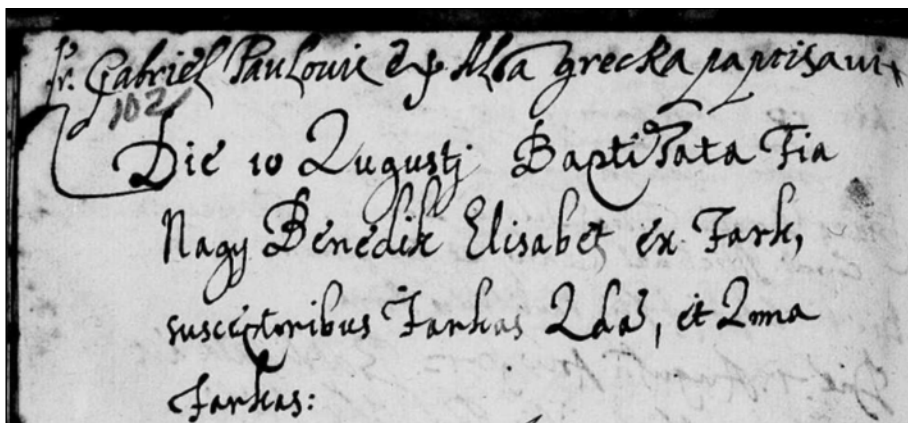 fr. Gabriel Paulouic ex Alba grecka paptisaui
102
Die 10 Augustj Baptisata Fia
Nagy Benedik Elisabet ex Fark,
susceptoribus Farkas Ada, et Anna
Farkas: